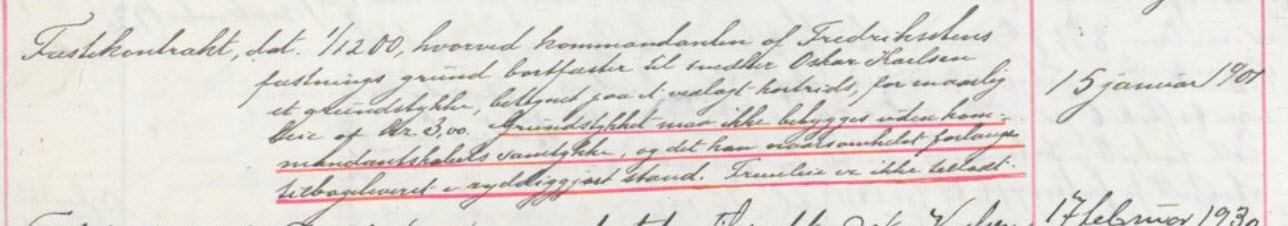 Festekontrakt, dat. 1/12 00, hvorved kommandanten of Fredrikstens
fæstnings grund bortfæster til snedker Oskar Karlsen
et grundstykke, betegnet paa et vedlagt kortrids, for maanlig
leie af kr. 3,00. Grundstykket maa ikke bebygges uden kom-
mandantskabets samtykke, og det kan naarsomhelst forlanges
tilbageleveret i ryddiggjort stand. Fremleie er ikke tilladt.
15 januar 1901
17 februar 1930